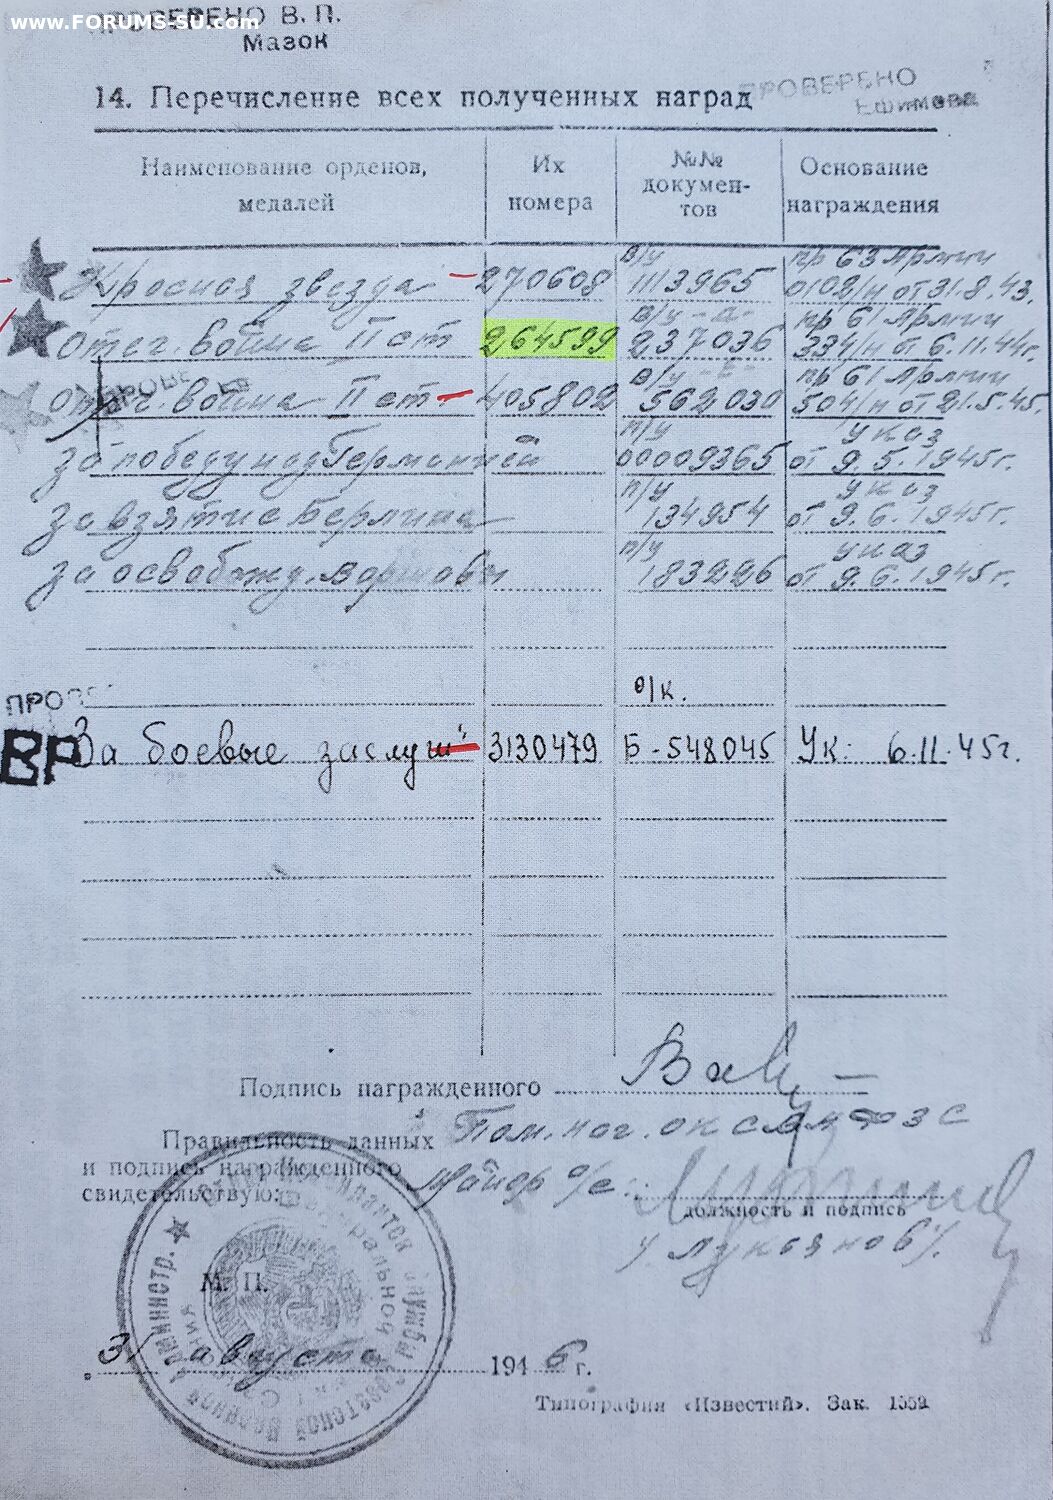 www.FORUMS-SU.com
ПРОВЕРЕНО В. П.
Мазок
ПРОВЕРЕНО
Ефимова
14. Перечисление всех полученных наград
Наименование орденов, медалей
Их номера
№№ докумен-тов
Основание награждения
Красная звезда 270608 в/у 1113965 пр 63 Армии 0102/н от 31.8.43.
Отеч. война II ст 264599 в/у 237036 пр 61 Армии 334/н от 6.11.44г.
Отеч. война II ст. 405802 в/у 562030 пр 61 Армии 504/н от 21.5.45.
за победу над Германией п/у 00009365 указ от 9.5.1945г.
за взятие Берлина п/у 134954 указ от 9.6.1945г.
за освобожд. Варшавы п/у 183226 указ от 9.6.1945г.
о/к.
ВР За боевые заслуги 3130479 Б-548045 Ук: 6.11.45г.
Подпись награжденного
Правильность данных
и подпись награжденного
свидетельствую:
Пом. нач.
Майор а/с.
должность и подпись
/Лукьянов/.
М. П.
31 августа 1946 г.
Типография «Известий». Зак. 1552